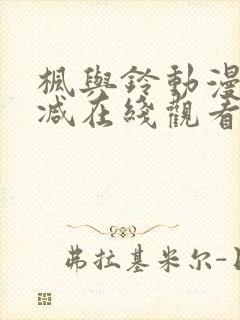 楓與鈴動漫
减在綫觀看
弗拉基米尔-